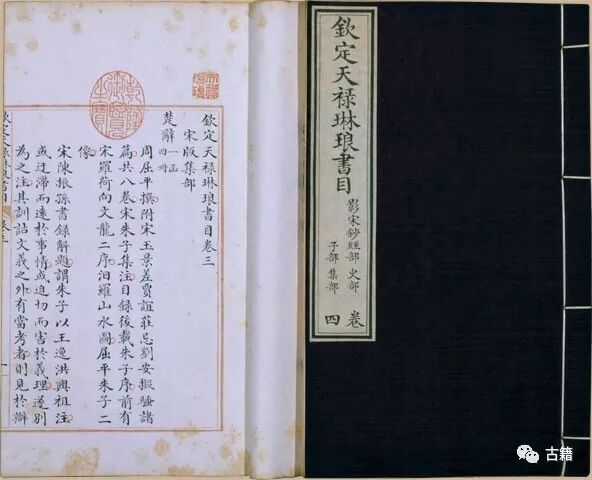 欽定天禄琳琅書目
影宋鈔經部 史部
子部 集部
卷
四
欽定天禄琳琅書目卷三
宋版集部
楚辭 一函
四冊
周屈平撰附宋玉景差賈誼莊忌劉安擬騷諸
篇共八卷宋朱子集注目錄後載朱子序前有
宋羅荷向文龍二序汨羅山水圖屈平朱子二
像
宋陳振孫書錄解題謂朱子以王逸洪興祖注
或迂滯而遠於事情或迫切而害於義理遂別
為之注其訓詁文義之外有當考者則見於辯
欽定天禄琳琅書目 卷三
乾隆御覽之寶
古籍